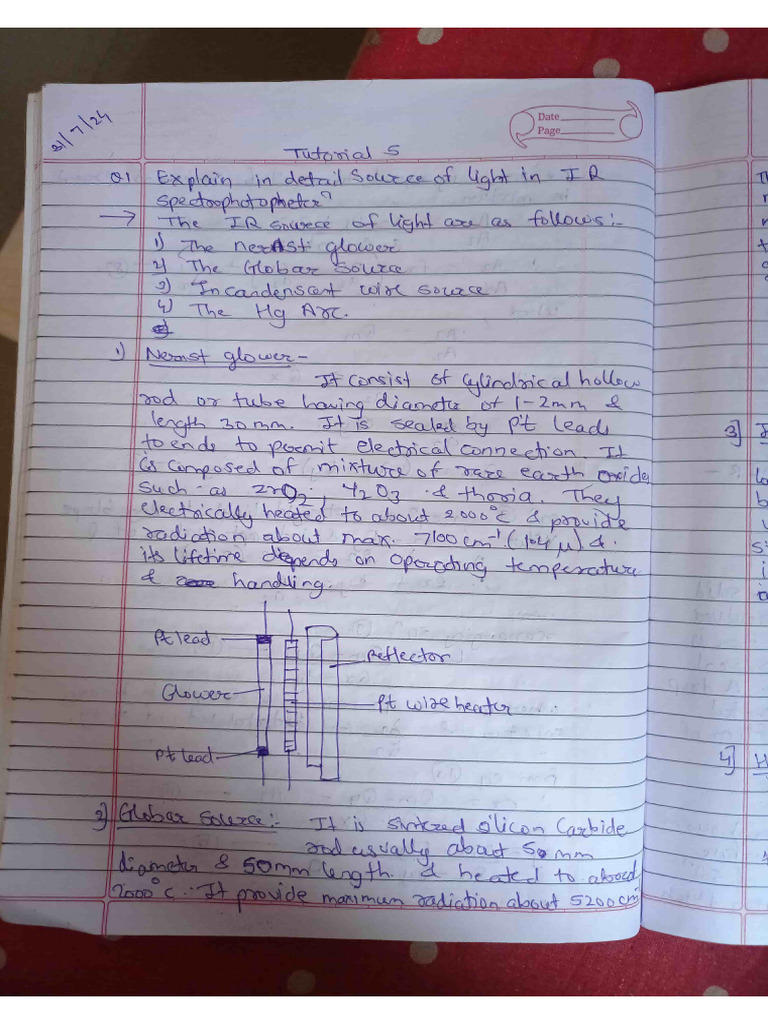 31/7/24
Date
Page
Tutorial 5
Q1 Explain in detail source of light in IR
spectrophotopheter?
→ The IR source of light are as follows:-
1) The nernst glower
2) The Globar source
3) Incandenscent wire source
4) The Hg Arc.
1) Nernst glower-
It consist of cylindrical hollow
rod or tube having diameter of 1-2mm &
length 30mm. It is sealed by Pt leads
to ends to permit electrical connection. It
is composed of mixture of rare earth oxides
such as ZrO2, Y2O3 & thoria. They
electrically heated to about 2000°C & provide
radiation about max. 7100 cm-1 (1.4 μ) &
its lifetime depends on operating temperature
& handling.
Pt lead
Reflector
Glower
Pt wire heater
Pt lead
2) Globar Source:- It is sintered silicon Carbide
rod usually about 50 mm
diameter & 50mm length. & heated to
2000°C. It provide maximum radiation about 5200cm-1
3]
4] H